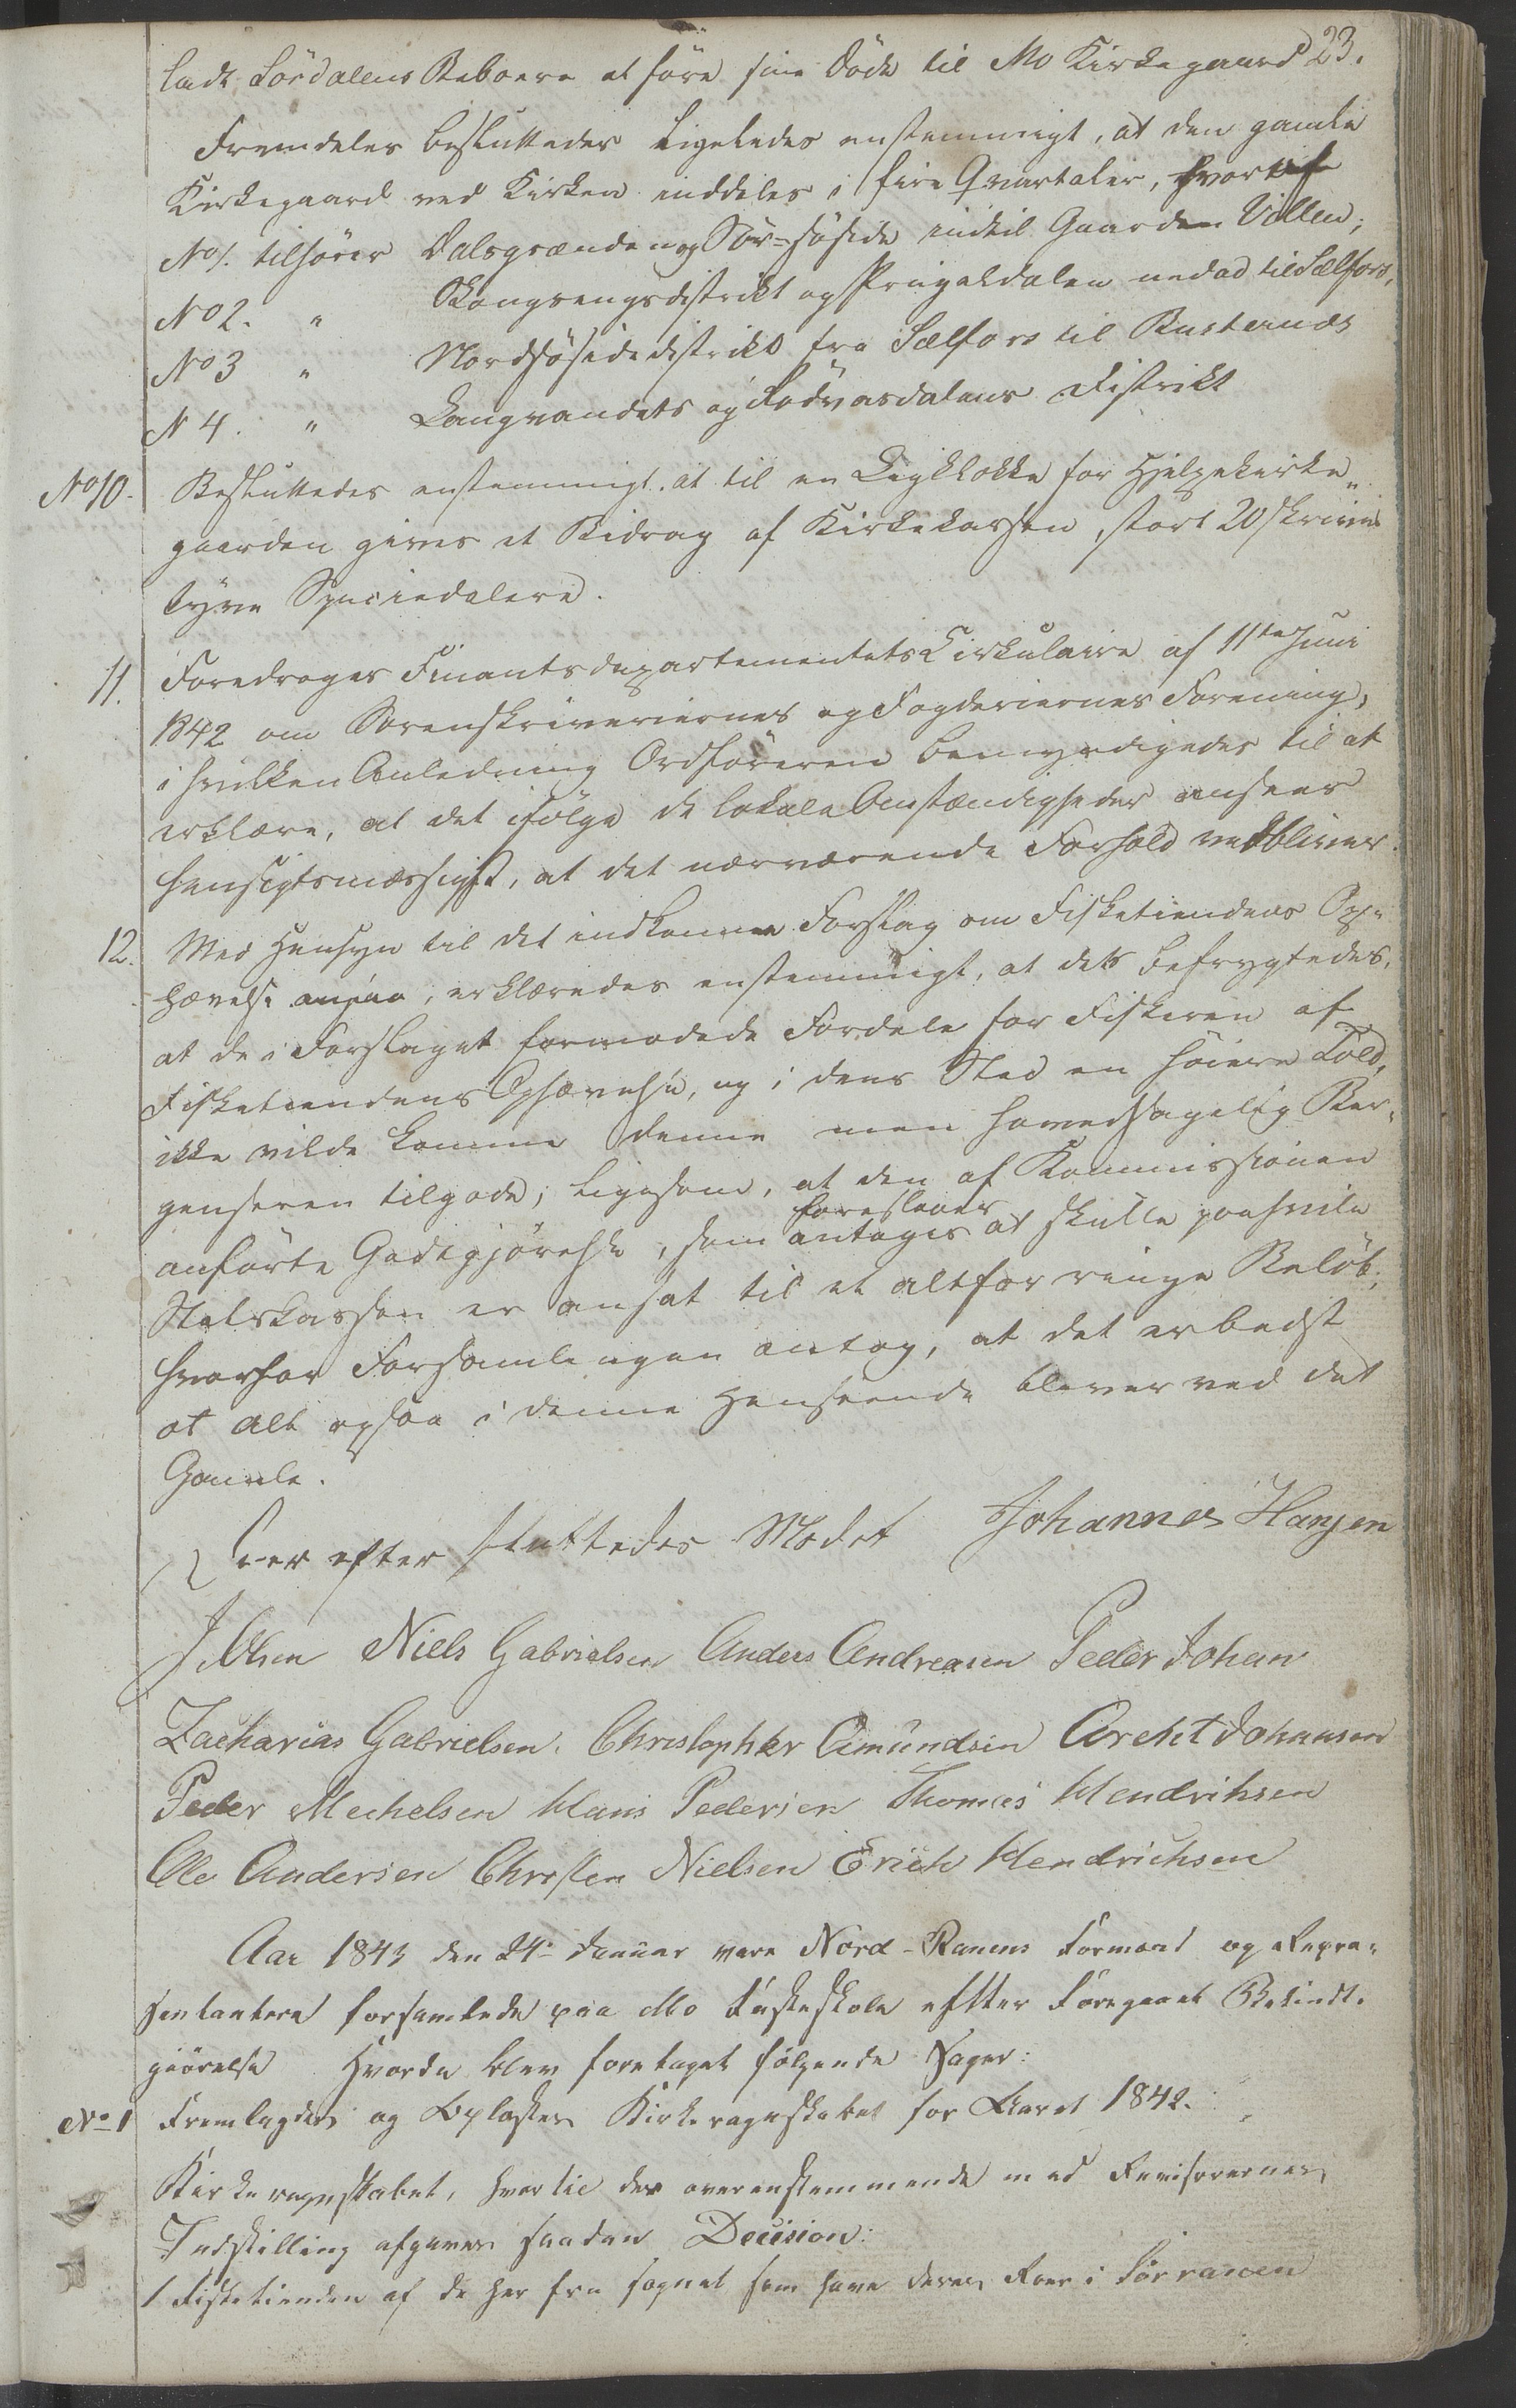 lade Sördalens Beboere at före sine Döde til Mo Kirkegaard 23.
Fremdeles besluttedes ligeledes enstemmigt, at den gamle
Kirkegaard ved Kirken inddeles i fire Qvartaler, hvortil
No 1. tilhörer Dalsgrænden og Sör-söside indtil Gaarden Villen;
No 2. " Skougsengsdistrikt og Plurgaldalen nedad til Selfors,
No 3 " Nordsösidedistrikt fra Selfors til Busternæs
N 4. " Langvandets og Rödvasdalens Distrikt
No 10. Besluttedes enstemmigt at til en Ligklokke for Hjelpekirke-
gaarden gives et Bidrag af Kirkekassen, stort 20 skriver
tyve Speciedalere.
11. Foredroges Finantsdepartementets Cirkulaire af 11te Juni
1842 om Sorenskriveriernes og Fogderiernes Forening,
i hvilken Anledning Ordföreren bemyndigedes til at
erklære, at det ifölge de lokale Omstændigheder ansees
hensigtsmæssigst, at det nærværende Forhold vedbliver.
12. Med Hensyn til det indkomne Forslag om Fisketiendens Op-
hævelse angaa, erklæredes enstemmigt, at det befrygtedes,
at de i Forslaget formodede Fordele for Fiskeren af
Fisketiendens Ophævelse, og i dens Sted en höiere Told,
ikke vilde komme denne men hovedsagelig Ber-
genseren tilgode; ligesom, at den af Kommissionen
foreslaaes
anförte Godtgjörelse, som antages at skulle paahvile
Statskassen er ansat til et altfor ringe Belöb;
hvorfor Forsamlingen antog, at det er bedst
at alt ogsaa i denne Henseende bliver ved det
Gamle.
Her efter sluttedes Mödet Johannes Hansen
J. Olsen Niels Gabrielsen Anders Andreasen Peder Johan
Zacharias Gabrielsen. Christopher Amundsen Arent Johansen
Peder Mechelsen Hans Pedersen Thomas Hendriksen
Ole Andersen Christen Nielsen Erich Hendrichsen
Aar 1843 den 24de Januar vare Nord-Ranens Formænd og Repræ-
sentantere forsamlede paa Mo Fasteskole eftter Foregaaet Bekindt-
giörelse Hvorda blev foretaget fölgende Sager:
No 1 Fremlagdes og Oplæstes Kirkeregnskabet for Aaret 1842.
Kirkeregnskabet, hvortil der overenstemmende med Revisorernes
Indstilling afgaves saadan Decision:
1 Fisketienden af de her fra sognet som have deres Roer i Sörranen